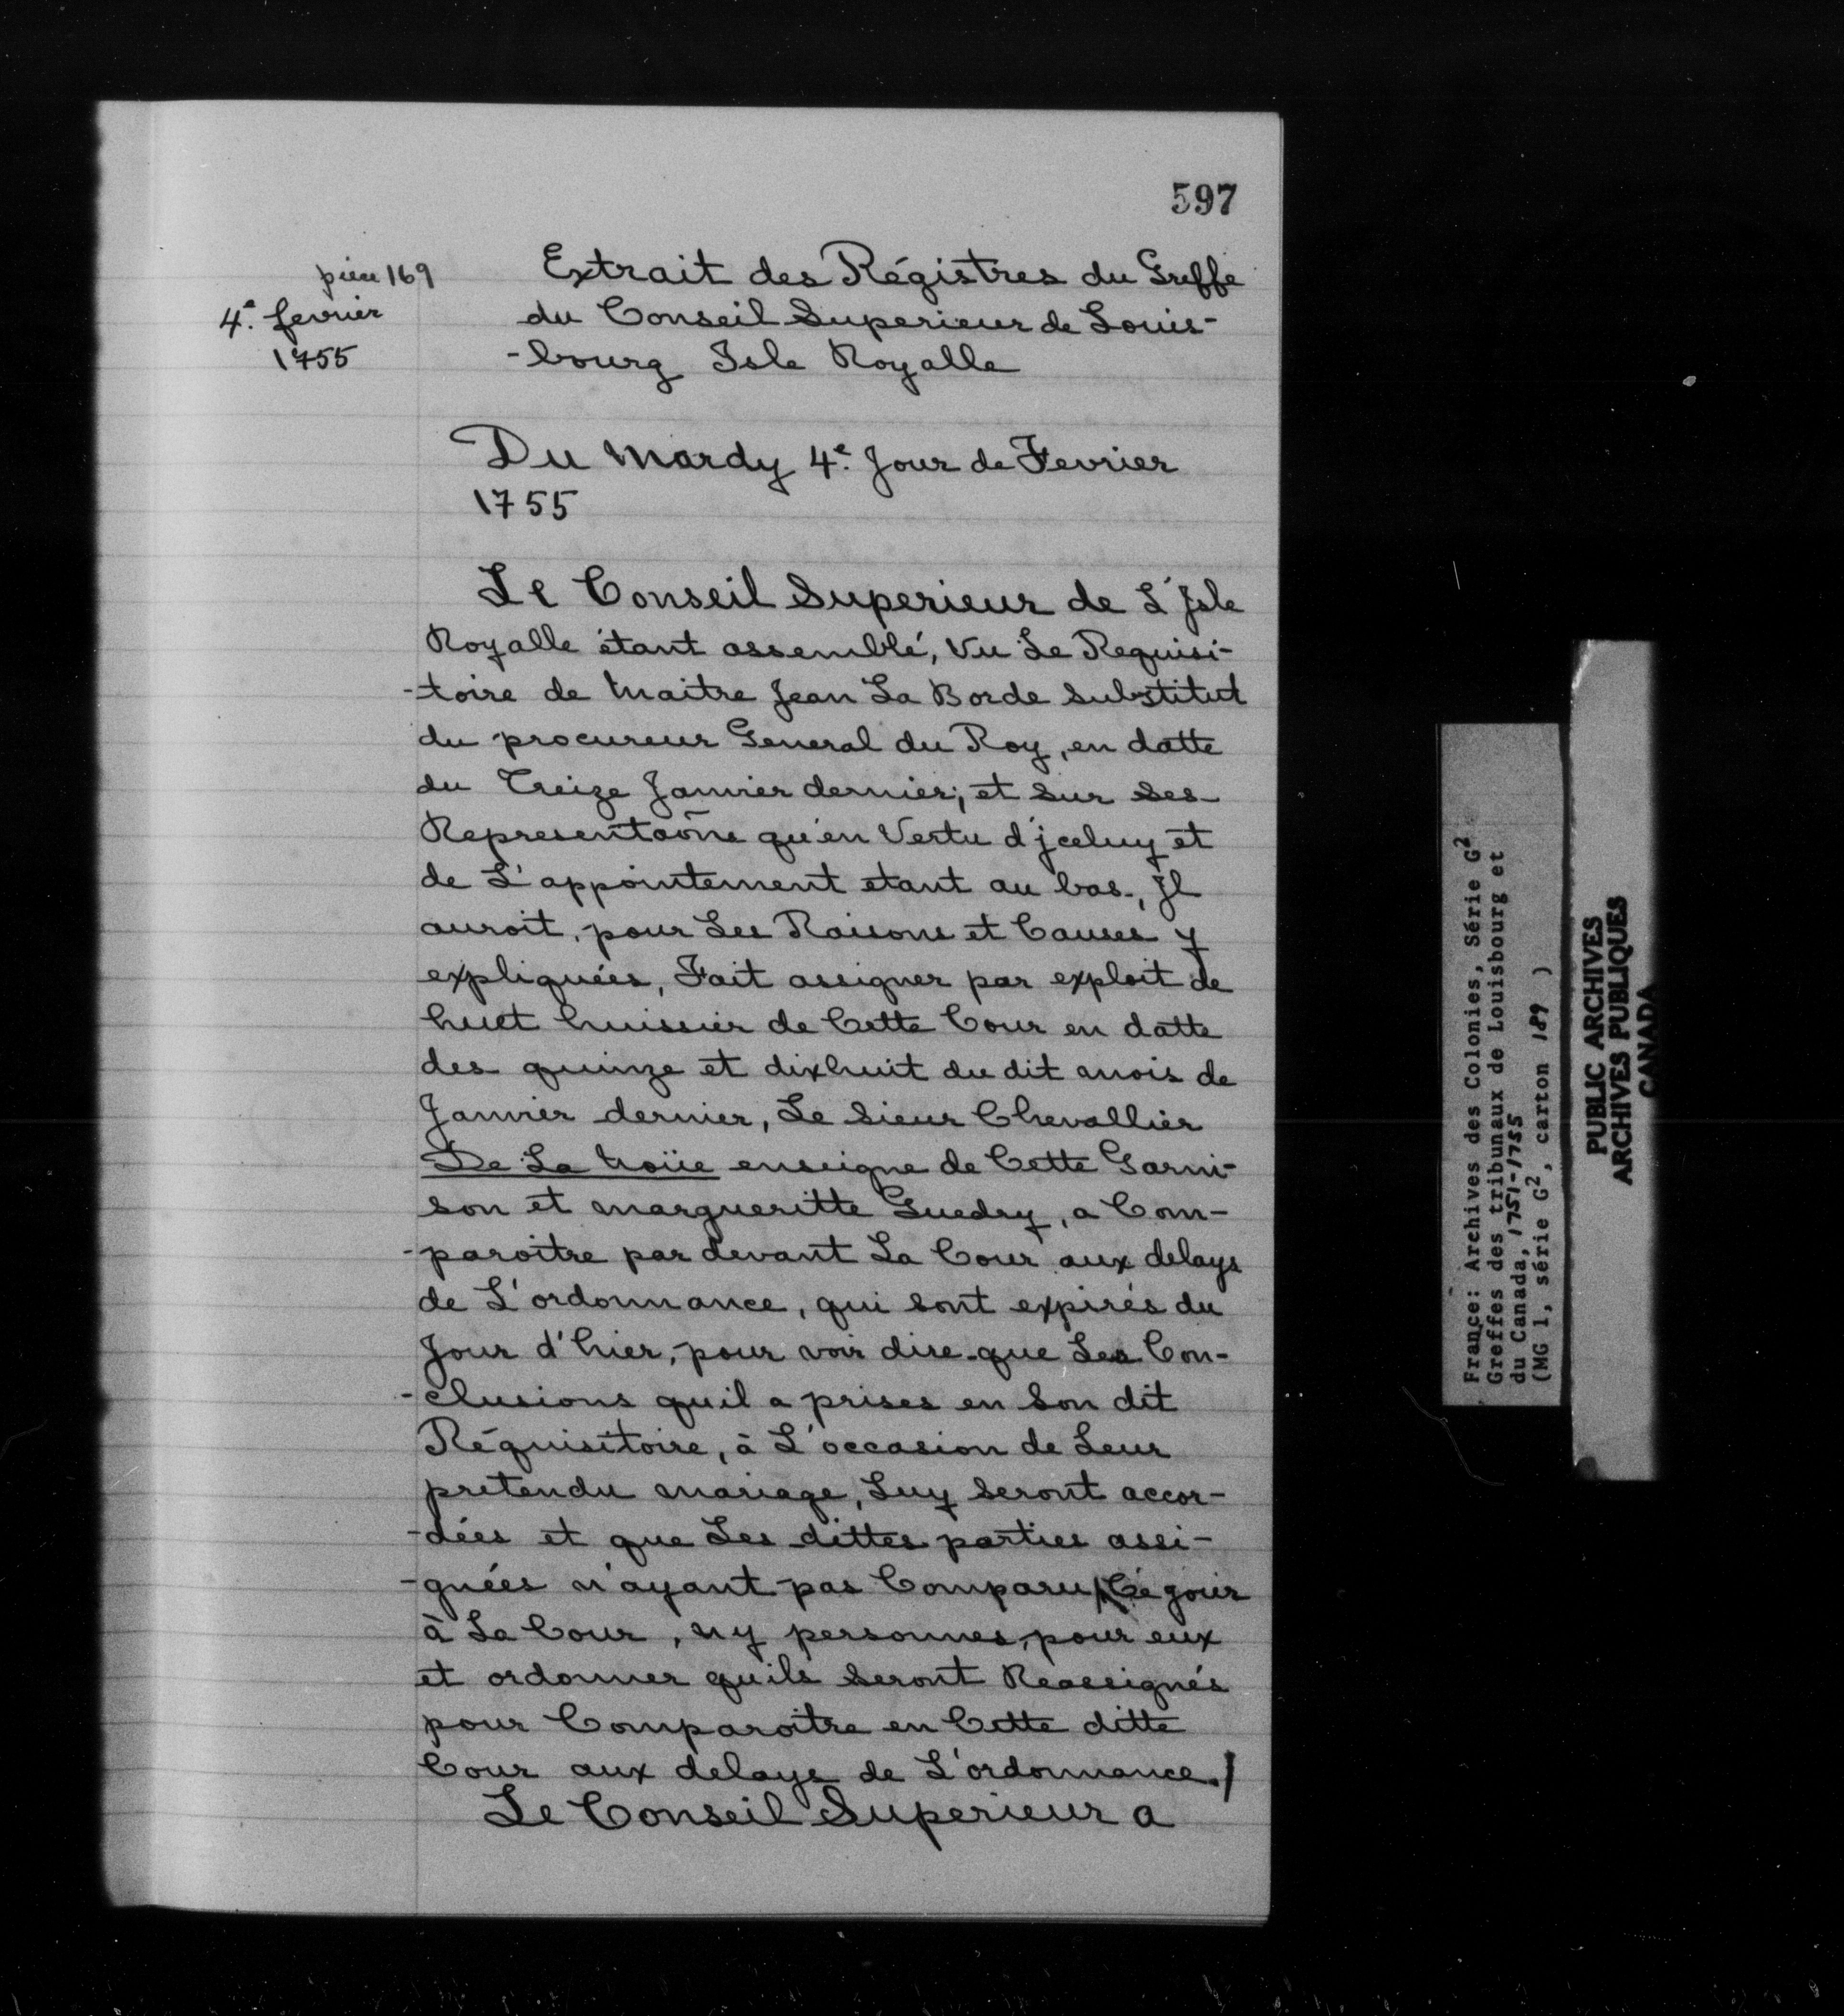 597
pièce 169
4e. fevrier
1755
Extrait des Régistres du Greffe
du Conseil Superieur de Louis-
-bourg Isle Royalle
Du Mardy 4e. Jour de Fevrier
1755
Le Conseil Superieur de L'Jsle
Royalle étant assemblé, Vu Le Requisi-
-toire de Maitre Jean La Borde Substitut
du procureur General du Roy, en datte
du Treize Janvier dernier; et sur ses
Representaõns qu'en Vertu d'jceluy et
de L'appointement etant au bas, Jl
auroit, pour Les Raisons et Causes y
expliquées, Fait assigner par exploit de
huet huissier de Cette Cour en datte
des quinze et dixhuit du dit mois de
Janvier dernier, Le sieur Chevallier
De La Noüe enseigne de Cette Garni-
son et margueritte Guedry, a Com-
-paroître par devant La Cour aux delays
de L'ordonnance, qui sont expirés du
Jour d'hier, pour voir dire que Les Con-
-clusions quil a prises en Son dit
Réquisitoire, à L'occasion de Leur
pretendu mariage, Luy seront accor-
-dées et que Les dittes parties assi-
-gnées n'ayant pas Comparu Cé jour
à La Cour, ny personnes, pour eux
et ordonner quils seront Reassignés
pour Comparoitre en Cette ditte
Cour aux delays de L'ordonnance./
Le Conseil Superieur a
France: Archives des Colonies, Série G2
Greffes des tribunaux de Louisbourg et
du Canada, 1751-1755
(MG 1, série G2, carton 189 )
PUBLIC ARCHIVES
ARCHIVES PUBLIQUES
CANADA